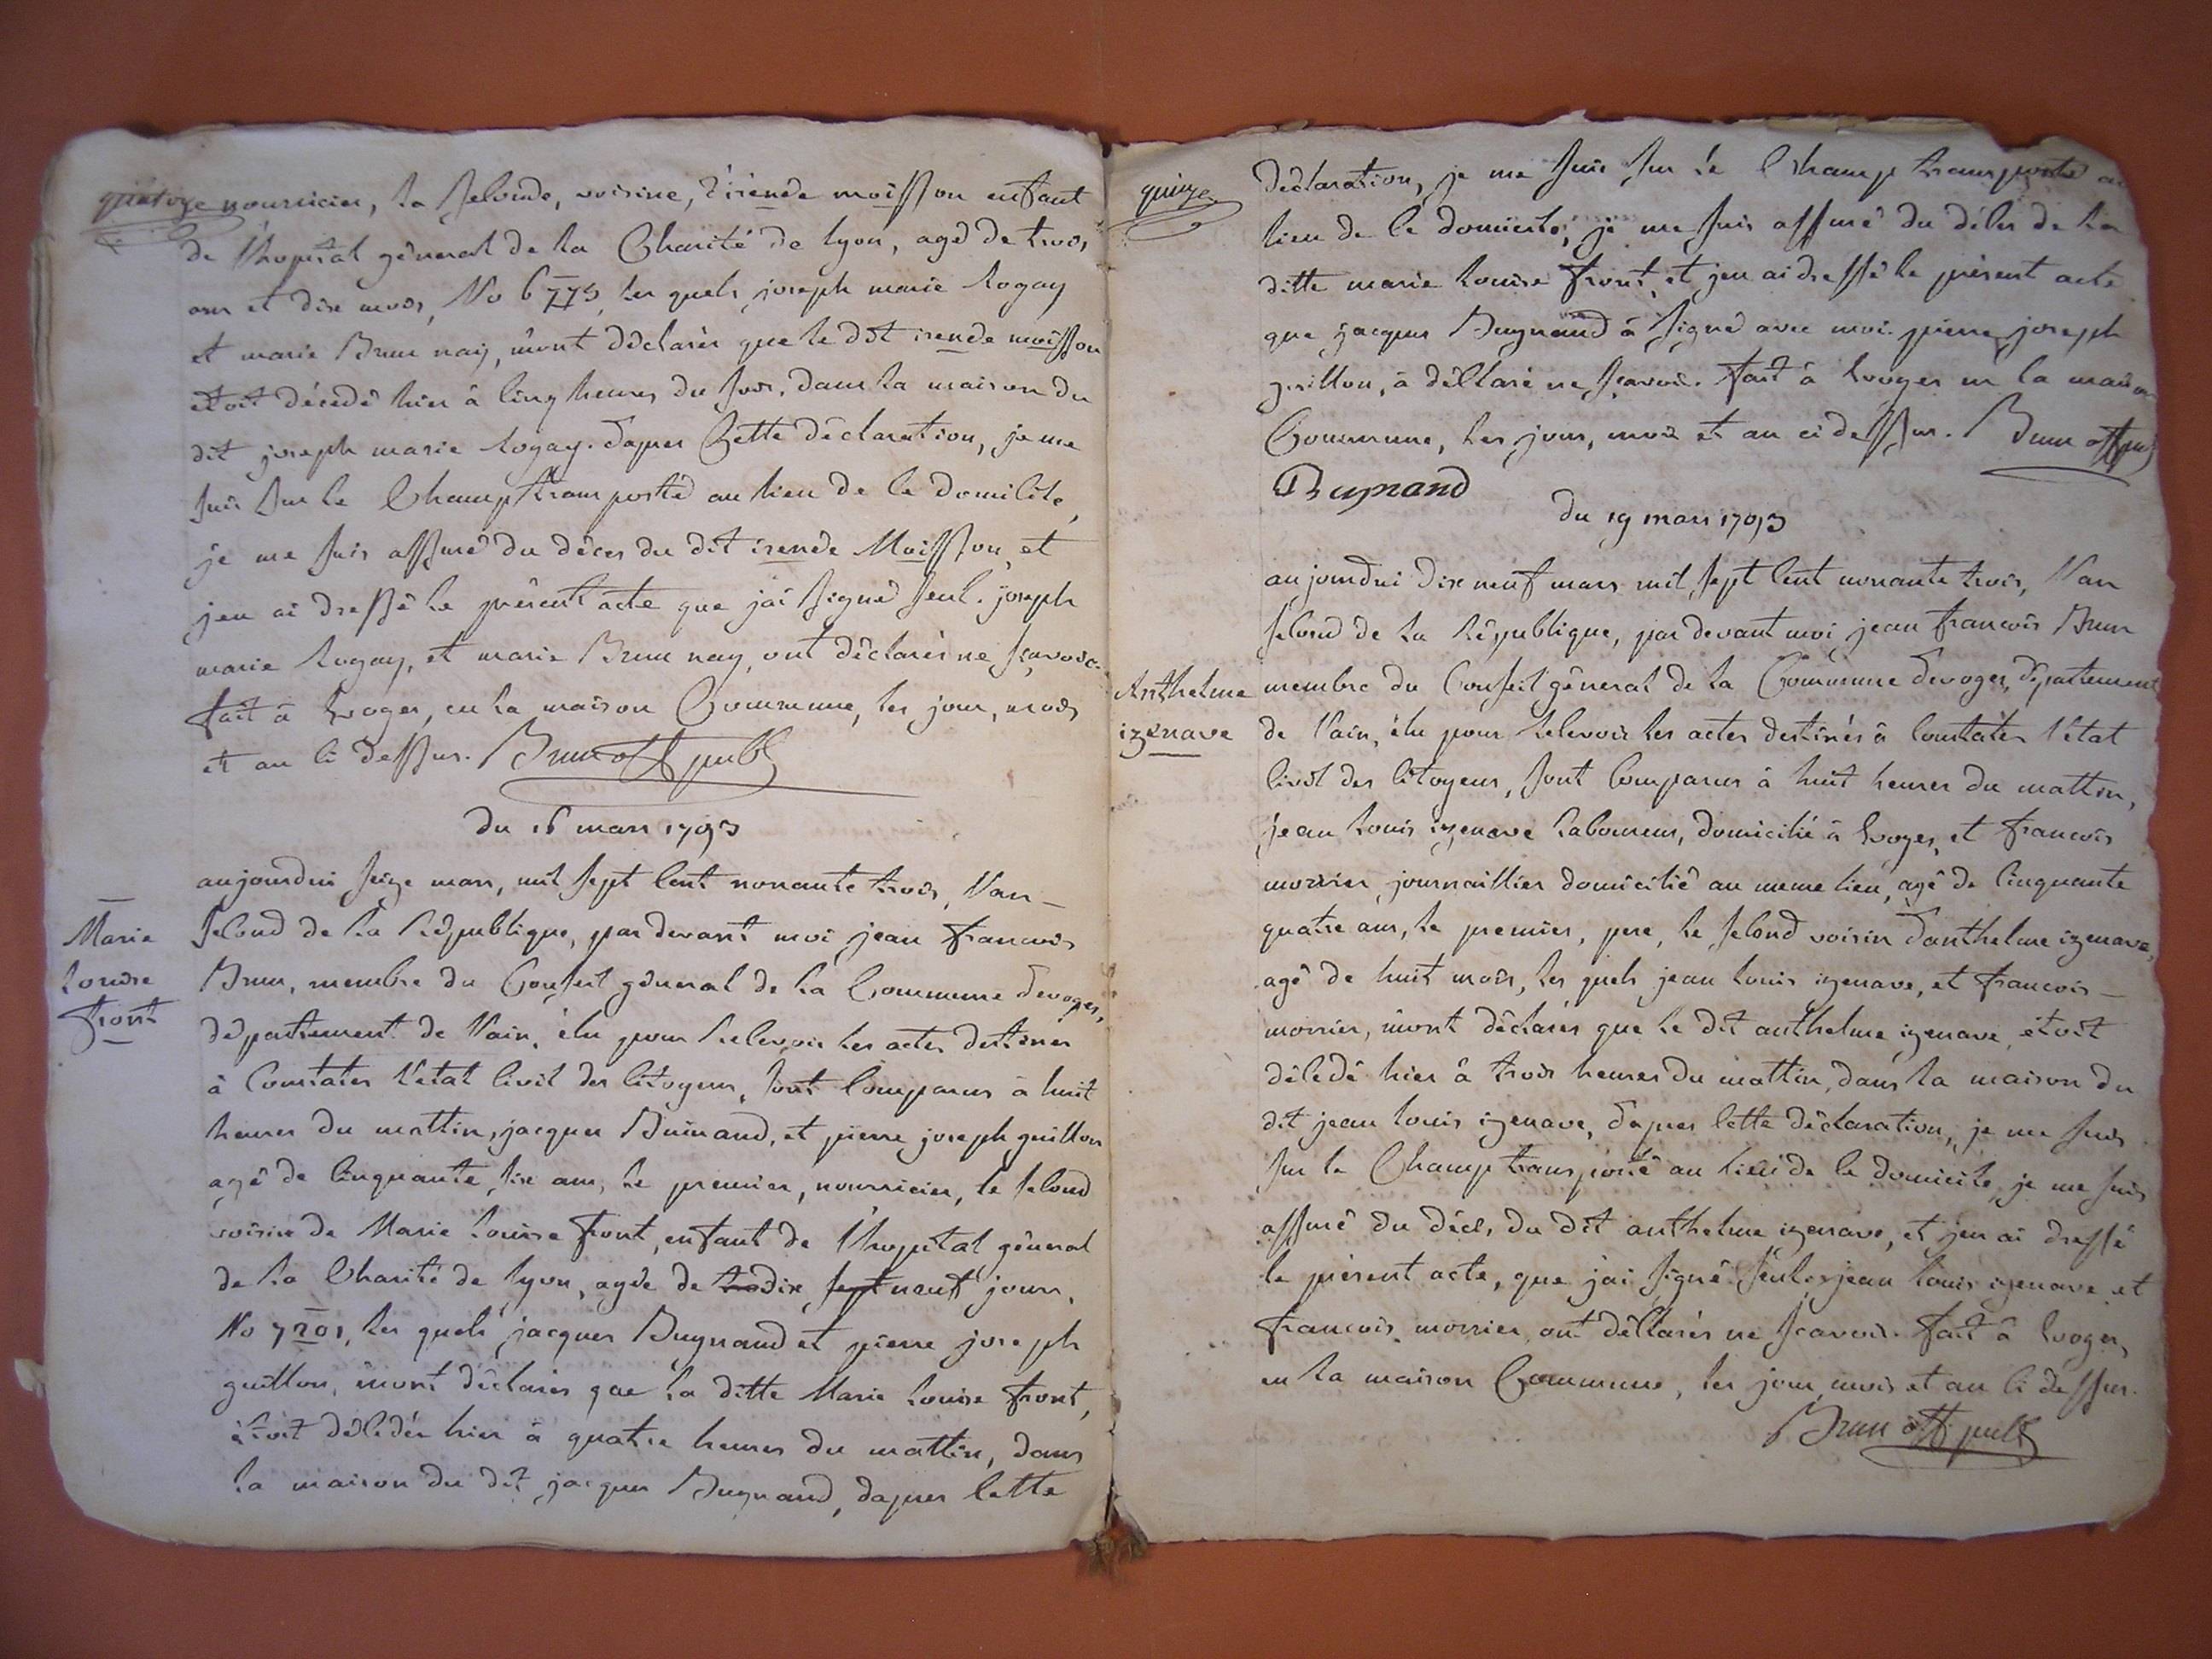 quatorze
nourricier, la seconde, voisine, d'irénde moisson enfant
de l'hopital géneral de la Charité de lyon, agé de trois
ans et dix mois, No 6773, les quels joseph marie logay
et marie Brun nay, m'ont déclarés que le dit irende moisson
etoit décedé hier à cinq heures du soir, dans la maison du
dit joseph marie logay. daprès Cette déclaration, je me
suis sur le Champ transporté au lieu de ce domicile,
je me suis assuré du déces du dit irende Moisson, et
jen ai dressé le présent acte que jai signé seul. joseph
marie logay, et marie Brun nay, ont déclarés ne scavoir.
fait à Evoges, en la maison Commune, les jour, mois
et an ci dessus. Brun off publ
du 16 mars 1793
Marie
Louise
front
aujourdui seize mars, mil sept cent nonante trois, l'an
second de la République, par devant moi jean francois
Brun, membre du Conseil géneral de la Commune devoges,
département de l'ain, élu pour recevoir les actes destines
à Constater l'etat civil des citoyens, sont comparus à huit
heures du mattin, jacques Buinand, et pierre joseph guillon
agé de cinquante six ans, le premier, nourricier, le second
voisin de Marie louise front, enfant de l'hopital géneral
de la Charité de lyon, agée de dix neuf jours,
No 7201, les quels jacques Buynand et pierre joseph
guillon, m'ont déclarés que la ditte Marie louise front,
étoit décédée hier à quatre heures du mattin, dans
la maison du dit jacques Buynand, daprès cette
quinze
déclaration, je me suis sur le Champ transporté au
lieu de ce domicile, je me suis assuré du déces de la
ditte marie louise front, et jen ai dressé le présent acte
que jacques Buynand à signé avec moi. pierre joseph
guillon, à déclaré ne scavoir. fait à Evoges en la maison
Commune, les jour, mois et an ci dessus. Brun off publ
Buynand
du 19 mars 1793
Anthelme
izenave
aujourdui dix neuf mars mil sept cent nonante trois, l'an
second de la République, par devant moi jean francois Brun
membre du Conseil géneral de la Commune devoges, département
de l'ain, élu pour recevoir les actes destinés à constater l'état
civil des citoyens, sont comparus à huit heures du mattin,
jean louis izenave laboureur, domicilié à Evoges, et francois
morrier, journaillier domicilié au meme lieu, agé de cinquante
quatre ans, le premier, pere, le second voisin d'anthelme izenave,
agé de huit mois, les quels jean louis izenave, et francois
morrier, m'ont déclarés que le dit anthelme izenave, étoit
décédé hier à trois heures du mattin, dans la maison du
dit jean louis izenave, daprès cette déclaration, je me suis
sur le Champ transporté au lieu de ce domicile, je me suis
assuré du déces du dit anthelme izenave, et jen ai dressé
le présent acte, que jai signé seul. jean louis izenave et
francois morrier, ont déclarés ne scavoir. fait à Evoges,
en la maison Commune, les jour, mois et an ci dessus.
Brun off publ